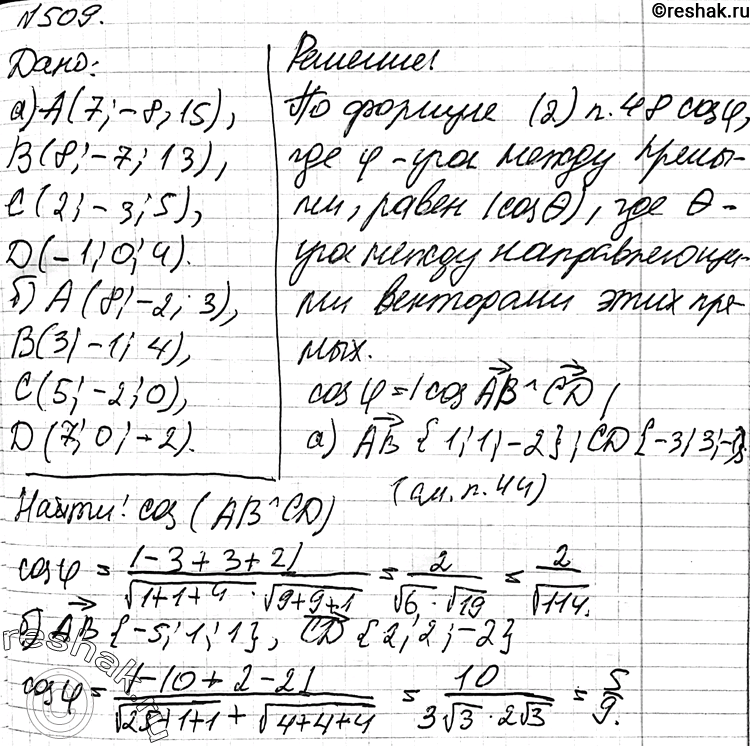 ©reshak.ru
№509.
Дано:
а) A(7; -8; 15),
B(8; -7; 13),
C(2; -3; 5),
D(-1; 0; 4).
б) A(8; -2; 3),
B(3; -1; 4),
C(5; -2; 0),
D(7; 0; -2).
Найти! cos(AB^CD)
Решение!
По формуле (2) п. 48 cosφ,
где φ - угол между прямы-
ми, равен |cosθ|, где θ -
угол между направляющи-
ми векторами этих пря-
мых.
cosφ = |cos AB^CD|
а) AB {1; 1; -2}; CD {-3; 3; -1}
(см. п. 44)
cosφ = |-3+3+2| / √1+1+4 · √9+9+1 = 2 / √6 · √19 = 2 / √114.
б) AB {-5; 1; 1}, CD {2; 2; -2}
cosφ = |-10+2-2| / √25+1+1 + √4+4+4 = 10 / 3√3 · 2√3 = 5/9.
reshak.ru